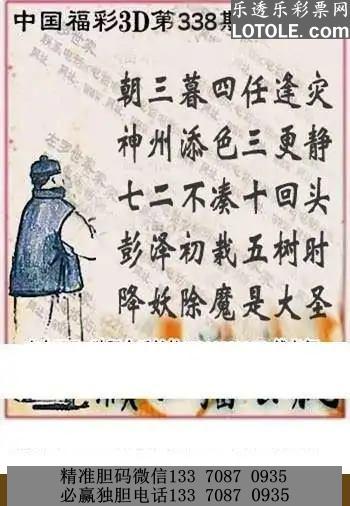 乐透乐彩票网
LOTOLE.COM
中国福彩3D第338期
朝三暮四任逢灾
神州添色三更静
七二不凑十回头
彭泽初栽五树时
降妖除魔是大圣
精准胆码微信133 7087 0935
必赢独胆电话133 7087 0935